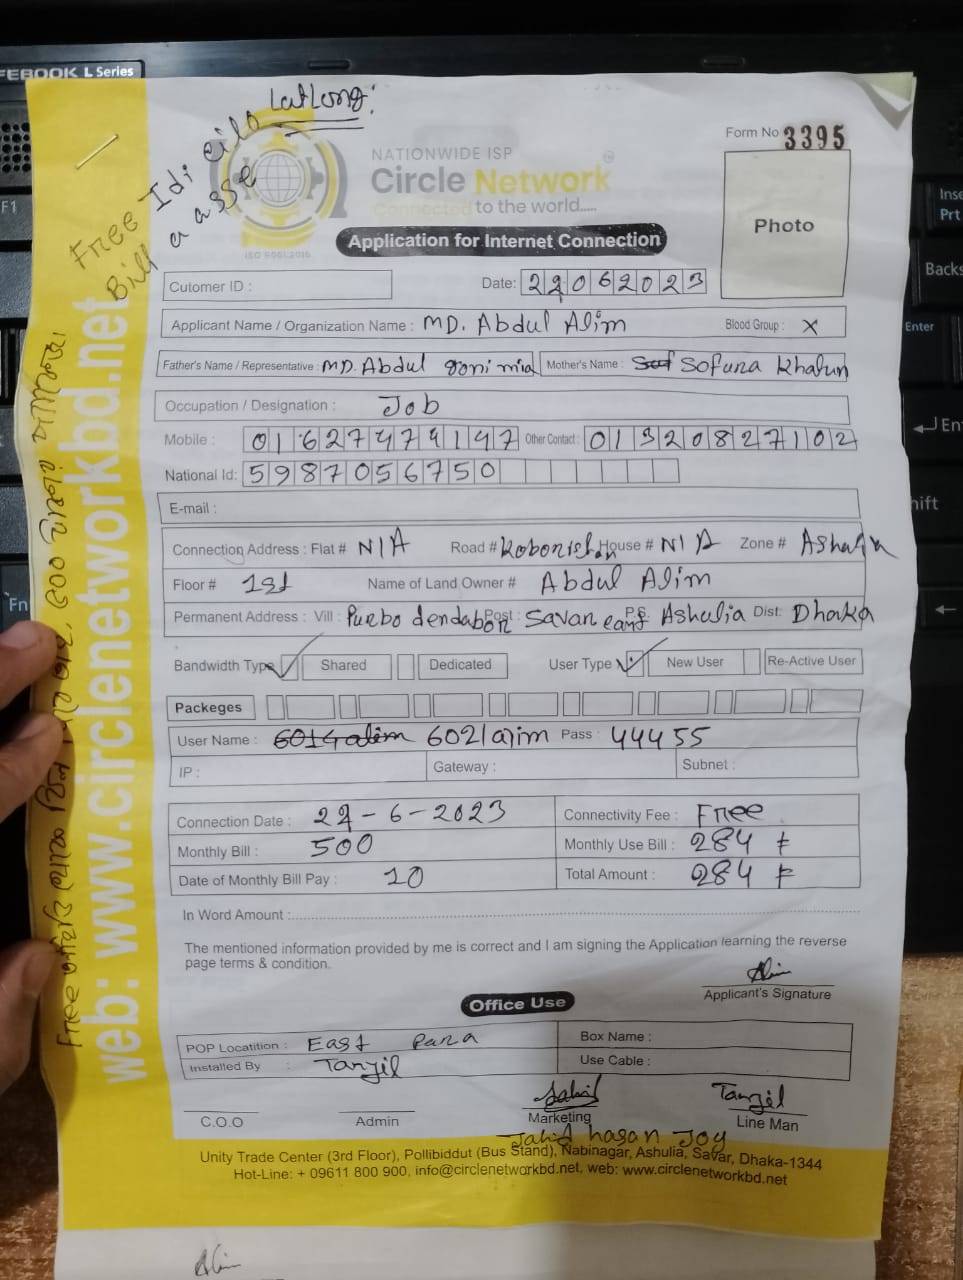 FEBOOK L Series
LatLong:
Free Idi cilo
Bill a asse
Form No 3395
NATIONWIDE ISP
Circle Network
Connected to the world.....
ISO 9001:2015
Photo
Application for Internet Connection
Cutomer ID :
Date: 22062023
Applicant Name / Organization Name : MD. Abdul Alim Blood Group : X
Father's Name / Representative : MD. Abdul goni mia Mother's Name : Sofuna Khatun
Occupation / Designation : Job
Mobile : 01627474147 Other Contact : 01320827102
National Id: 5987056750
E-mail :
Connection Address : Flat # N/A Road # House # N/A Zone # Ashulia
Floor # 1st Name of Land Owner # Abdul Alim
Permanent Address : Vill : Purbo dendabor Post : Savar cant P.S: Ashulia Dist: Dhaka
Bandwidth Type Shared Dedicated User Type New User Re-Active User
Packeges
User Name : 6014alim 6021alim Pass : 44455
IP : Gateway : Subnet :
Connection Date : 22-6-2023 Connectivity Fee : Free
Monthly Bill : 500 Monthly Use Bill : 284 ৳
Date of Monthly Bill Pay : 10 Total Amount : 284 ৳
In Word Amount :
The mentioned information provided by me is correct and I am signing the Application learning the reverse
page terms & condition.
Alim
Applicant's Signature
Office Use
POP Locatition : East Para Box Name :
Installed By : Tanzil Use Cable :
Jahid Tanzil
C.O.O Admin Marketing Line Man
Jahid hasan Joy
Unity Trade Center (3rd Floor), Pollibiddut (Bus Stand), Nabinagar, Ashulia, Savar, Dhaka-1344
Hot-Line: + 09611 800 900, info@circlenetworkbd.net, web: www.circlenetworkbd.net
web: www.circlenetworkbd.net
Alim
F1
Fn
Inse
Prt
Backs
Enter
En
hift